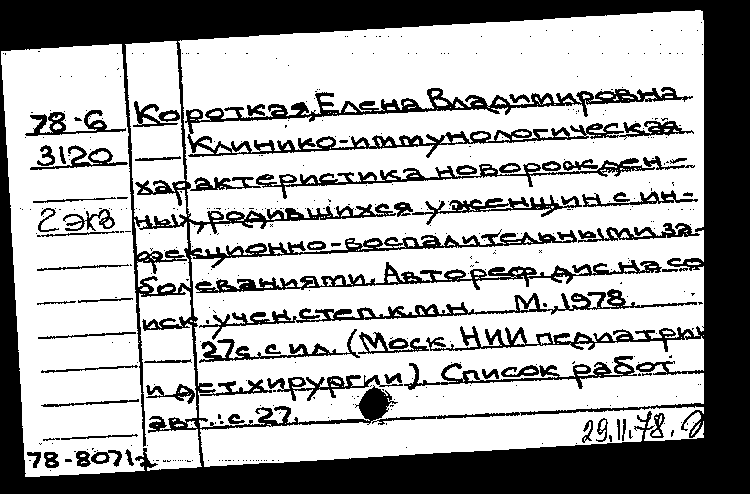 78-6 Короткая, Елена Владимировна.
3120 Клинико-иммунологическая
характеристика новорожден-
2 экз ных, родившихся у женщин с ин-
фекционно-воспалительными за-
болеваниями. Автореф. дис. на со
иск. учен. степ. к.м.н. М., 1978.
27с. с ил. (Моск. НИИ педиатрии
и дет. хирургии). Список работ
авт.: с. 27.
29.11.78.
78-8071